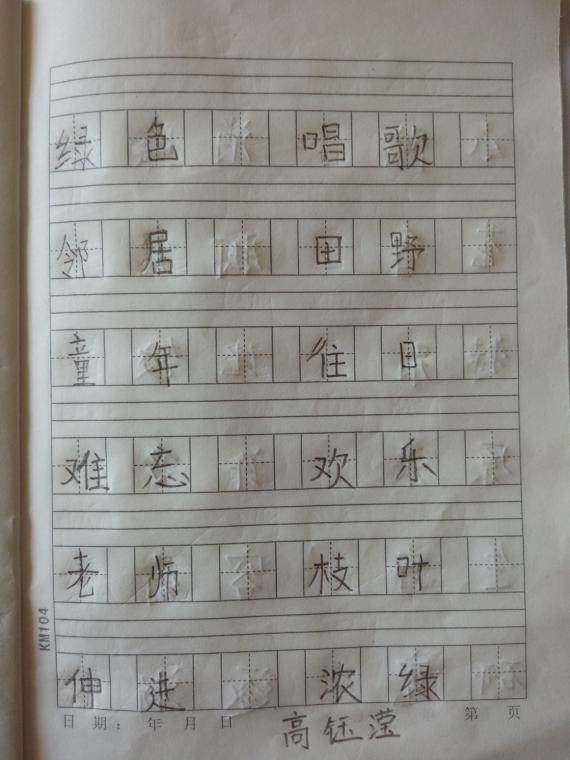 绿色 唱歌
邻居 田野
童年 往日
难忘 欢乐
老师 枝叶
伸进 浓绿
KM104
日期： 年 月 日 第 页
高钰滢